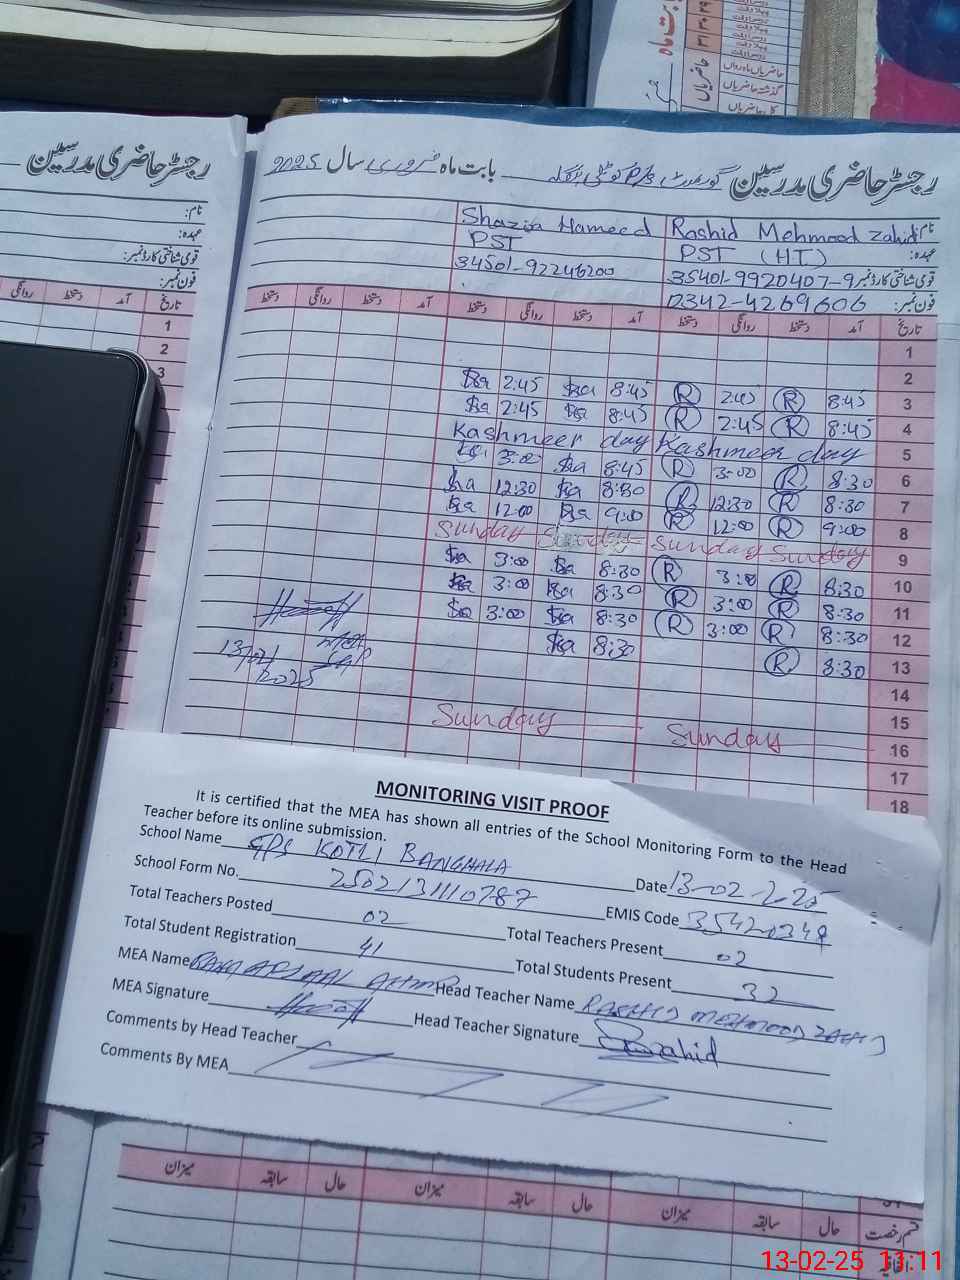 رجسٹر حاضری مدرسین
نام:
عہدہ:
قومی شناختی کارڈ نمبر:
فون نمبر:
تاریخ آمد دستخط روانگی
1
2
3
رجسٹر حاضری مدرسین گورنمنٹ P/S کوٹلی بنگلہ بابت ماہ فروری سال 2025
نام: Rashid Mehmood Zahid Shazia Hameed
عہدہ: PST (HT) PST
قومی شناختی کارڈ نمبر: 35401-9920407-9 34501-92246200
فون نمبر: 0342-4269606
تاریخ آمد دستخط روانگی دستخط آمد دستخط روانگی دستخط آمد دستخط روانگی دستخط
1
2
Sa 2:45 Sa 8:45 R 2:45 R 8:45 3
Sa 2:45 Sa 8:45 R 2:45 R 8:45 4
Kashmeer day Kashmeer day 5
Sa 3:00 Sa 8:45 R 3:00 R 8:30 6
Sa 12:30 Sa 8:30 R 12:30 R 8:30 7
Sa 12:00 Sa 9:00 R 12:00 R 9:00 8
Sunday Sunday Sunday Sunday 9
Sa 3:00 Sa 8:30 R 3:00 R 8:30 10
Sa 3:00 Sa 8:30 R 3:00 R 8:30 11
Sa 3:00 Sa 8:30 R 3:00 R 8:30 12
Sa 8:30 R 8:30 13
13/02/2025
MEA
14
15
Sunday Sunday 16
17
18
MONITORING VISIT PROOF
It is certified that the MEA has shown all entries of the School Monitoring Form to the Head
Teacher before its online submission.
School Name GPS KOTLI BANGHALA Date 13-02-2025
School Form No. 2502131110787 EMIS Code 35420349
Total Teachers Posted 02 Total Teachers Present 02
Total Student Registration 41 Total Students Present 32
MEA Name Head Teacher Name RASHID MEHMOOD ZAHID
MEA Signature Head Teacher Signature Rashid
Comments by Head Teacher
Comments By MEA
قسم رخصت حال سابقہ میزان حال سابقہ میزان حال سابقہ میزان
اتفاقیہ
13-02-25 11:11